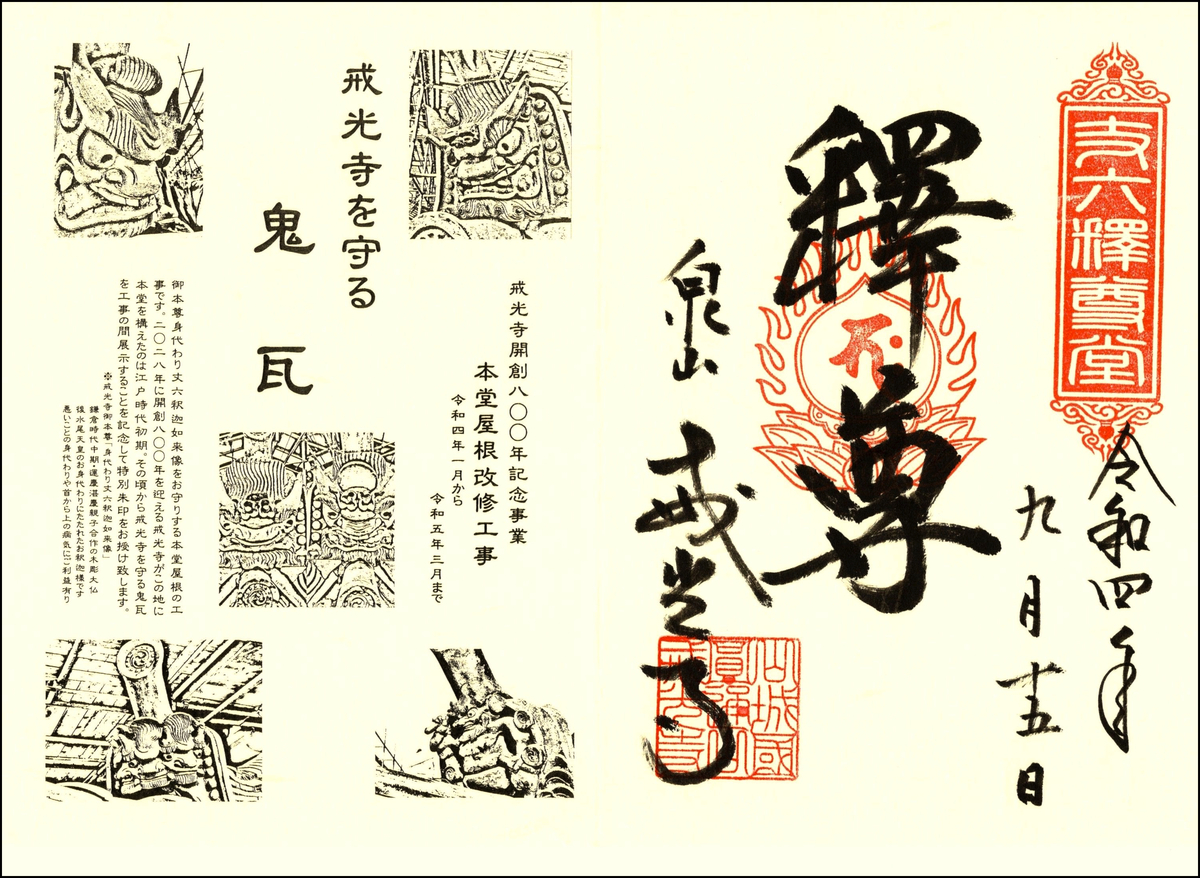 丈六釋尊堂
令和四年
九月十五日
釋尊
泉山 戒光寺
戒光寺開創八〇〇年記念事業
本堂屋根改修工事
令和四年一月から
令和五年三月まで
戒光寺を守る
鬼瓦
御本尊身代わり丈六釈迦如来像をお守りする本堂屋根の工
事です。二〇二八年に開創八〇〇年を迎える戒光寺がこの地に
本堂を構えたのは江戸時代初期。その頃から戒光寺を守る鬼瓦
を工事の間展示することを記念して特別朱印をお授け致します。
※戒光寺御本尊「身代わり丈六釈迦如来像」
鎌倉時代中期・運慶湛慶親子合作の木彫大仏
後水尾天皇のお身代わりにたたれたお釈迦様です
悪いことの身代わりや首から上の病気にご利益有り